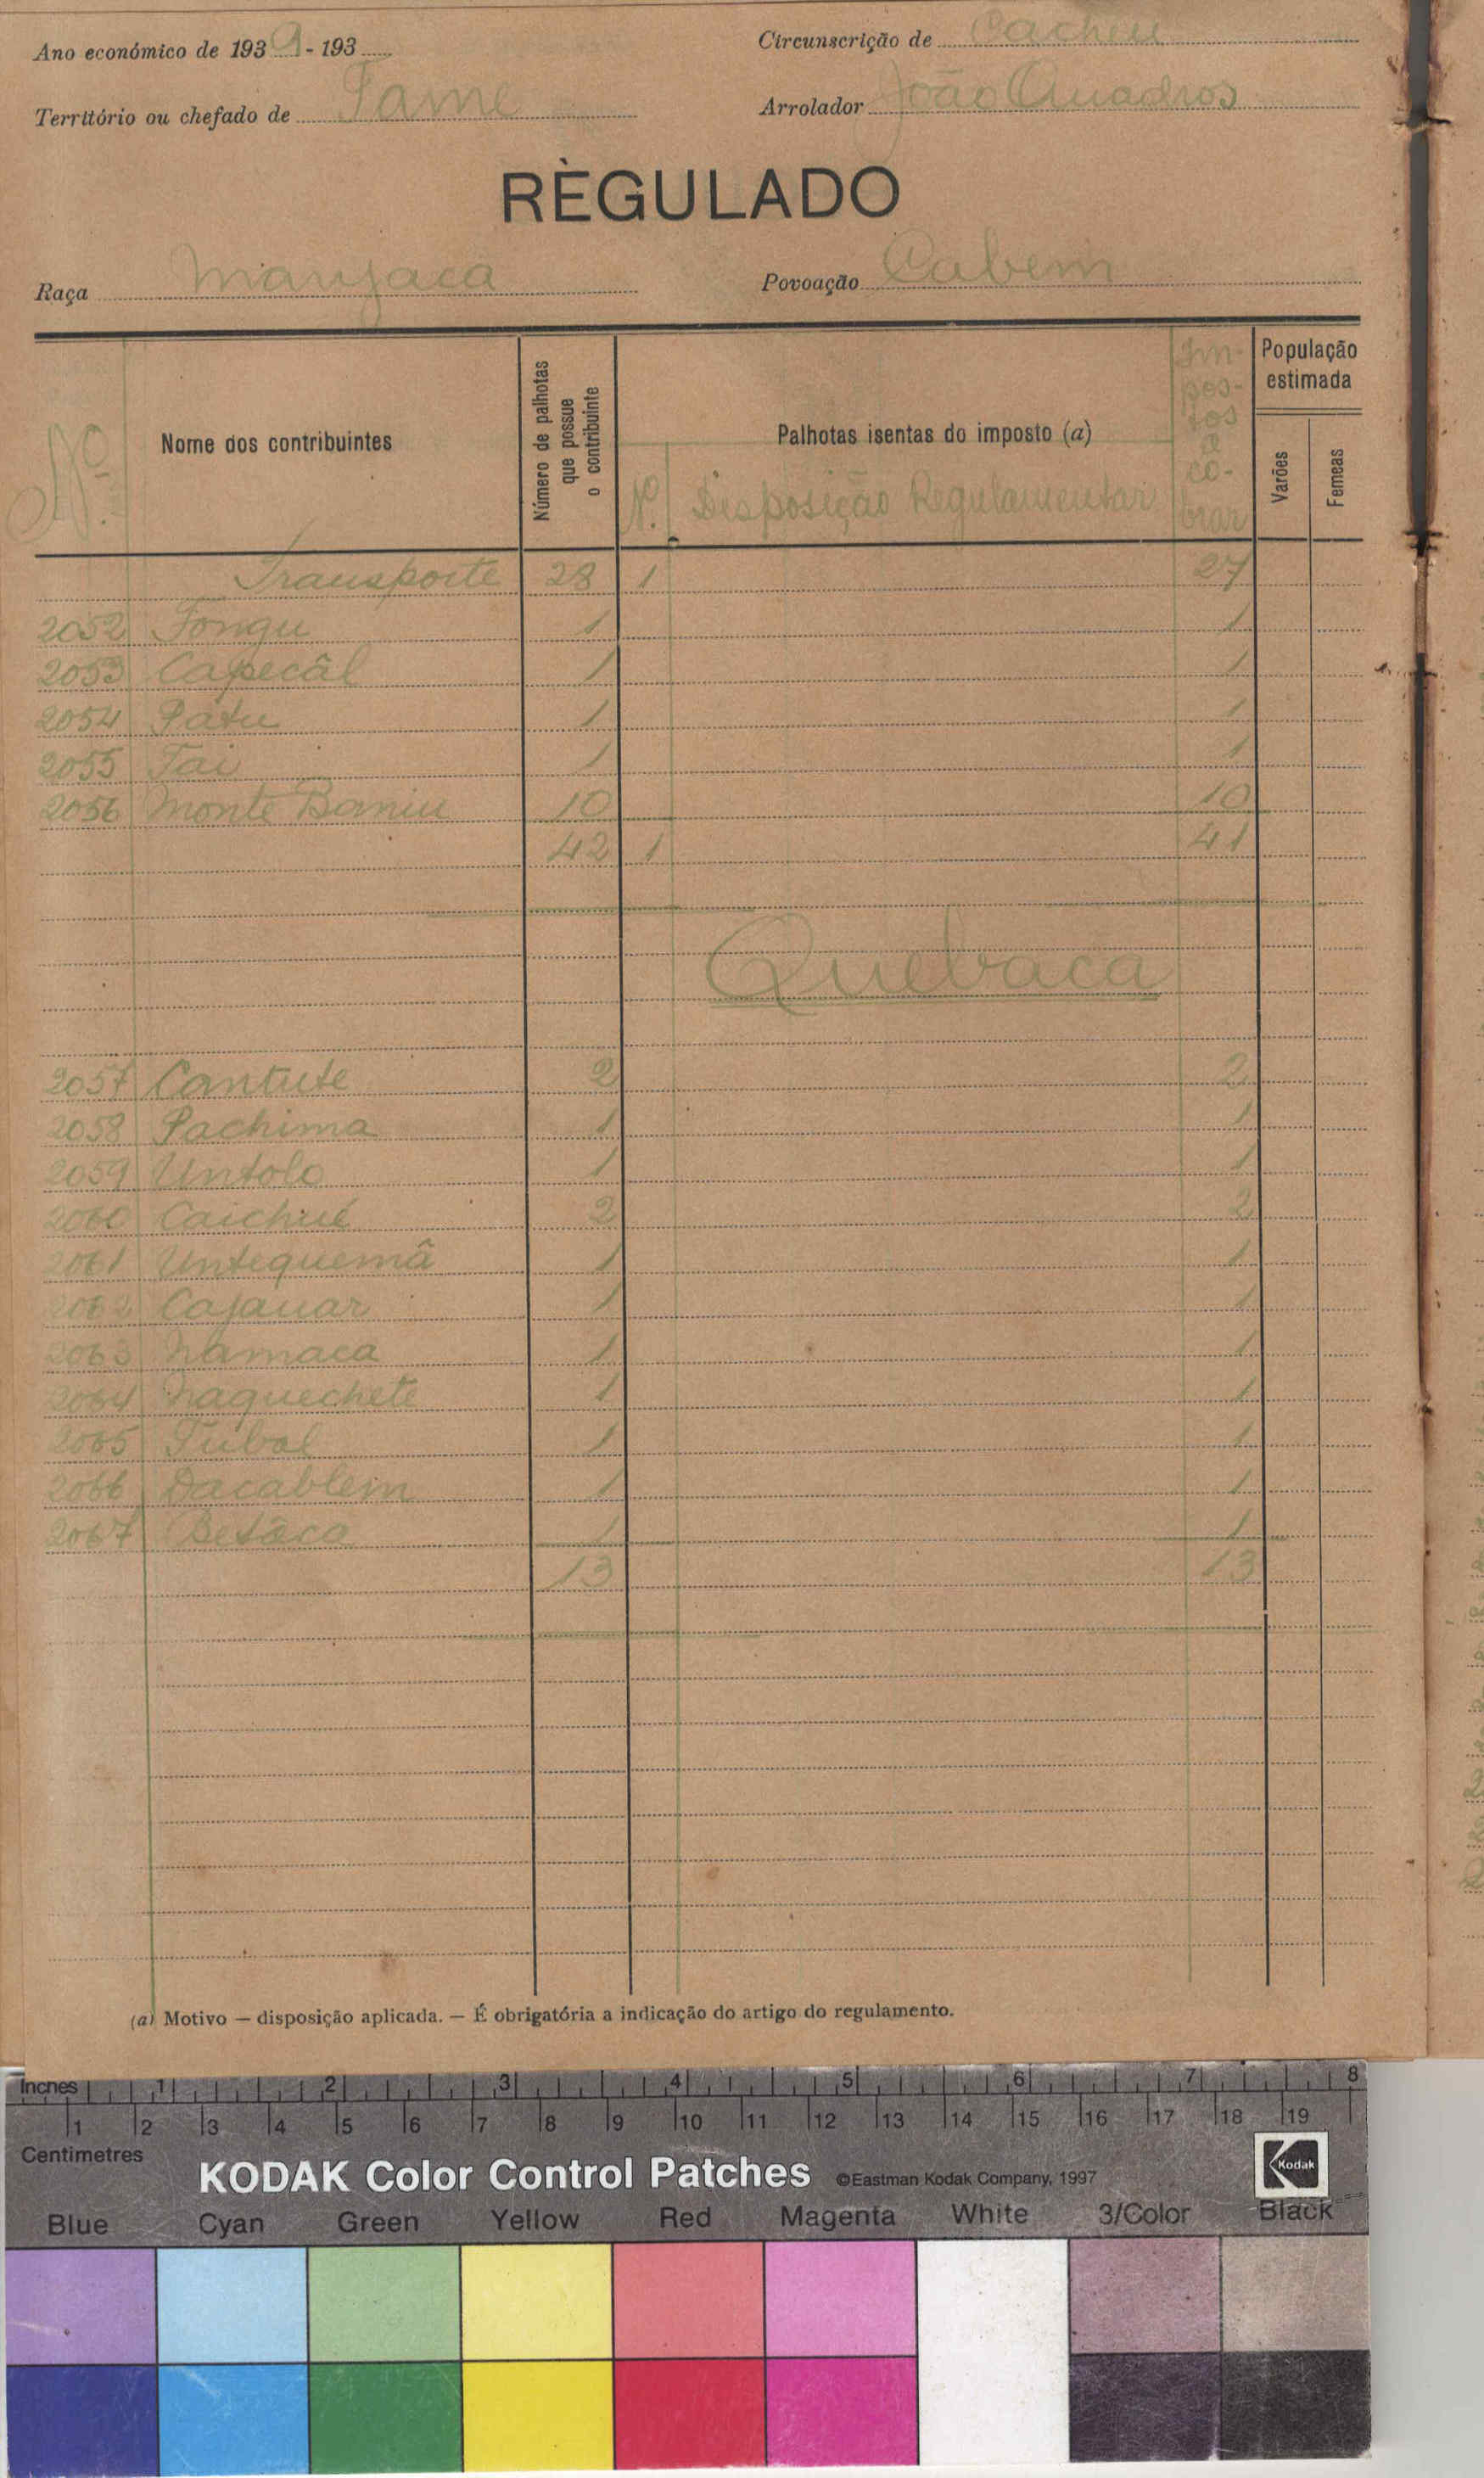 Ano económico de 1939 - 193.....
Circunscrição de Cacheu
Território ou chefado de Pame
Arrolador João Quadros
RÈGULADO
Raça Manjaca
Povoação Cabem
Nº
Nome dos contribuintes
Número de palhotas que possue o contribuinte
Palhotas isentas do imposto (a)
Nº.
Disposição Regulamentar
Im-
pos-
tos
a
co-
brar
População estimada
Varões
Femeas
Transporte 28 1 27
2052 Fongu 1 1
2053 Capecâl 1 1
2054 Patu 1 1
2055 Tai 1 1
2056 Monte Baniu 10 10
42 1 41
Quebaca
2057 Cantute 2 2
2058 Pachima 1 1
2059 Untolo 1 1
2060 Caichué 2 2
2061 Untequemâ 1 1
2062 Cajauar 1 1
2063 Namaca 1 1
2064 Naquechete 1 1
2065 Tubal 1 1
2066 Dacablem 1 1
2067 Betâca 1 1
13 13
(a) Motivo — disposição aplicada. — É obrigatória a indicação do artigo do regulamento.
Inches 1 2 3 4 5 6 7 8
1 2 3 4 5 6 7 8 9 10 11 12 13 14 15 16 17 18 19
Centimetres
KODAK Color Control Patches ©Eastman Kodak Company, 1997 Kodak
Blue Cyan Green Yellow Red Magenta White 3/Color Black